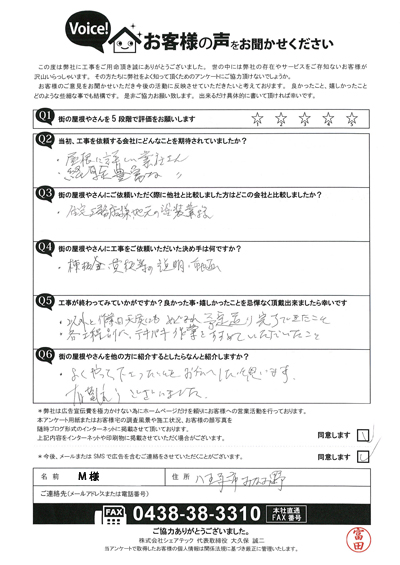 Voice!
お客様の声をお聞かせください
この度は弊社に工事をご用命頂き誠にありがとうございました。世の中には弊社の存在やサービスをご存知ないお客様が
沢山いらっしゃいます。その方たちに弊社をよく知って頂くためのアンケートにご協力頂けないでしょうか。
お客様のご意見をお聞かせいただき今後の活動に反映させていただきたいと考えております。良かったこと、嬉しかったこと
どのような些細な事でも結構です。是非ご協力お願い致します。出来るだけ具体的に書いて頂ければ幸いです。
Q1 街の屋根やさんを5段階で評価をお願いします
Q2 当初、工事を依頼する会社にどんなことを期待されていましたか?
・屋根に詳しい業社さん
・経験豊富な 〃
Q3 街の屋根やさんにご依頼いただく際に他社と比較しました方はどこの会社と比較しましたか?
地元の塗装業
Q4 街の屋根やさんに工事をご依頼いただいた決め手は何ですか?
・棟板金 貫板等の説明・動画
Q5 工事が終わってみていかがですか?良かった事・嬉しかったことを忌憚なく頂戴出来ましたら幸いです
・以外と作業の天気にもめぐまれ 予定通り完了できたこと
テキパキ作業をすすめていただいたこと
Q6 街の屋根やさんを他の方に紹介するとしたらなんと紹介しますか?
・よくやって下さった
有難うございました。
*弊社は広告宣伝費を極力かけない為にホームページだけを頼りにお客様への営業活動を行っております。
本アンケート用紙またはお客様宅の調査風景や施工状況、お客様の顔写真を
随時ブログ形式でのインターネットに掲載させて頂いております。
上記内容をインターネットや印刷物に掲載させていただく場合がございます。
同意します
*今後、メールまたは SMS で広告を含むご連絡をさせていただくことがございます。
同意します
名前 M様 住所 八王子市みなみ野
ご連絡先(メールアドレスまたは電話番号)
FAX 0438-38-3310 本社直通 FAX番号
ご協力ありがとうございました。
株式会社シェアテック 代表取締役 大久保 誠二
当アンケートで取得したお客様の個人情報は関係法規に基づき厳正に管理いたします。
富田